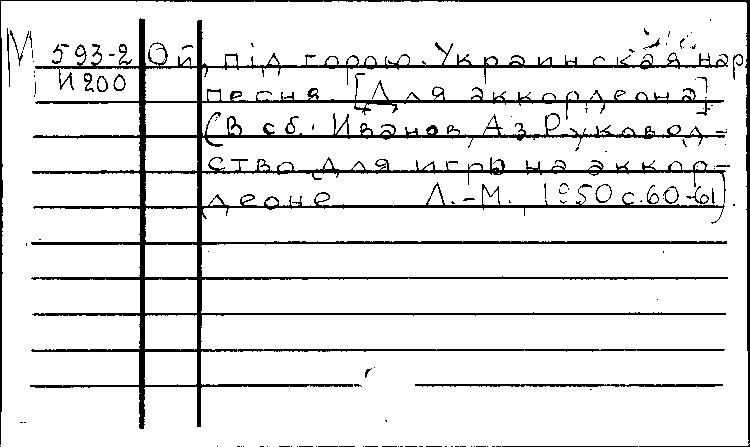 М 593-2 Ой, під горою. Украинская нар.
И 200 песня. [Для аккордеона]
(В сб.: Иванов, Аз. Руковод=
ство для игры на аккор-
деоне. Л.-М. 1950 с. 60-61).